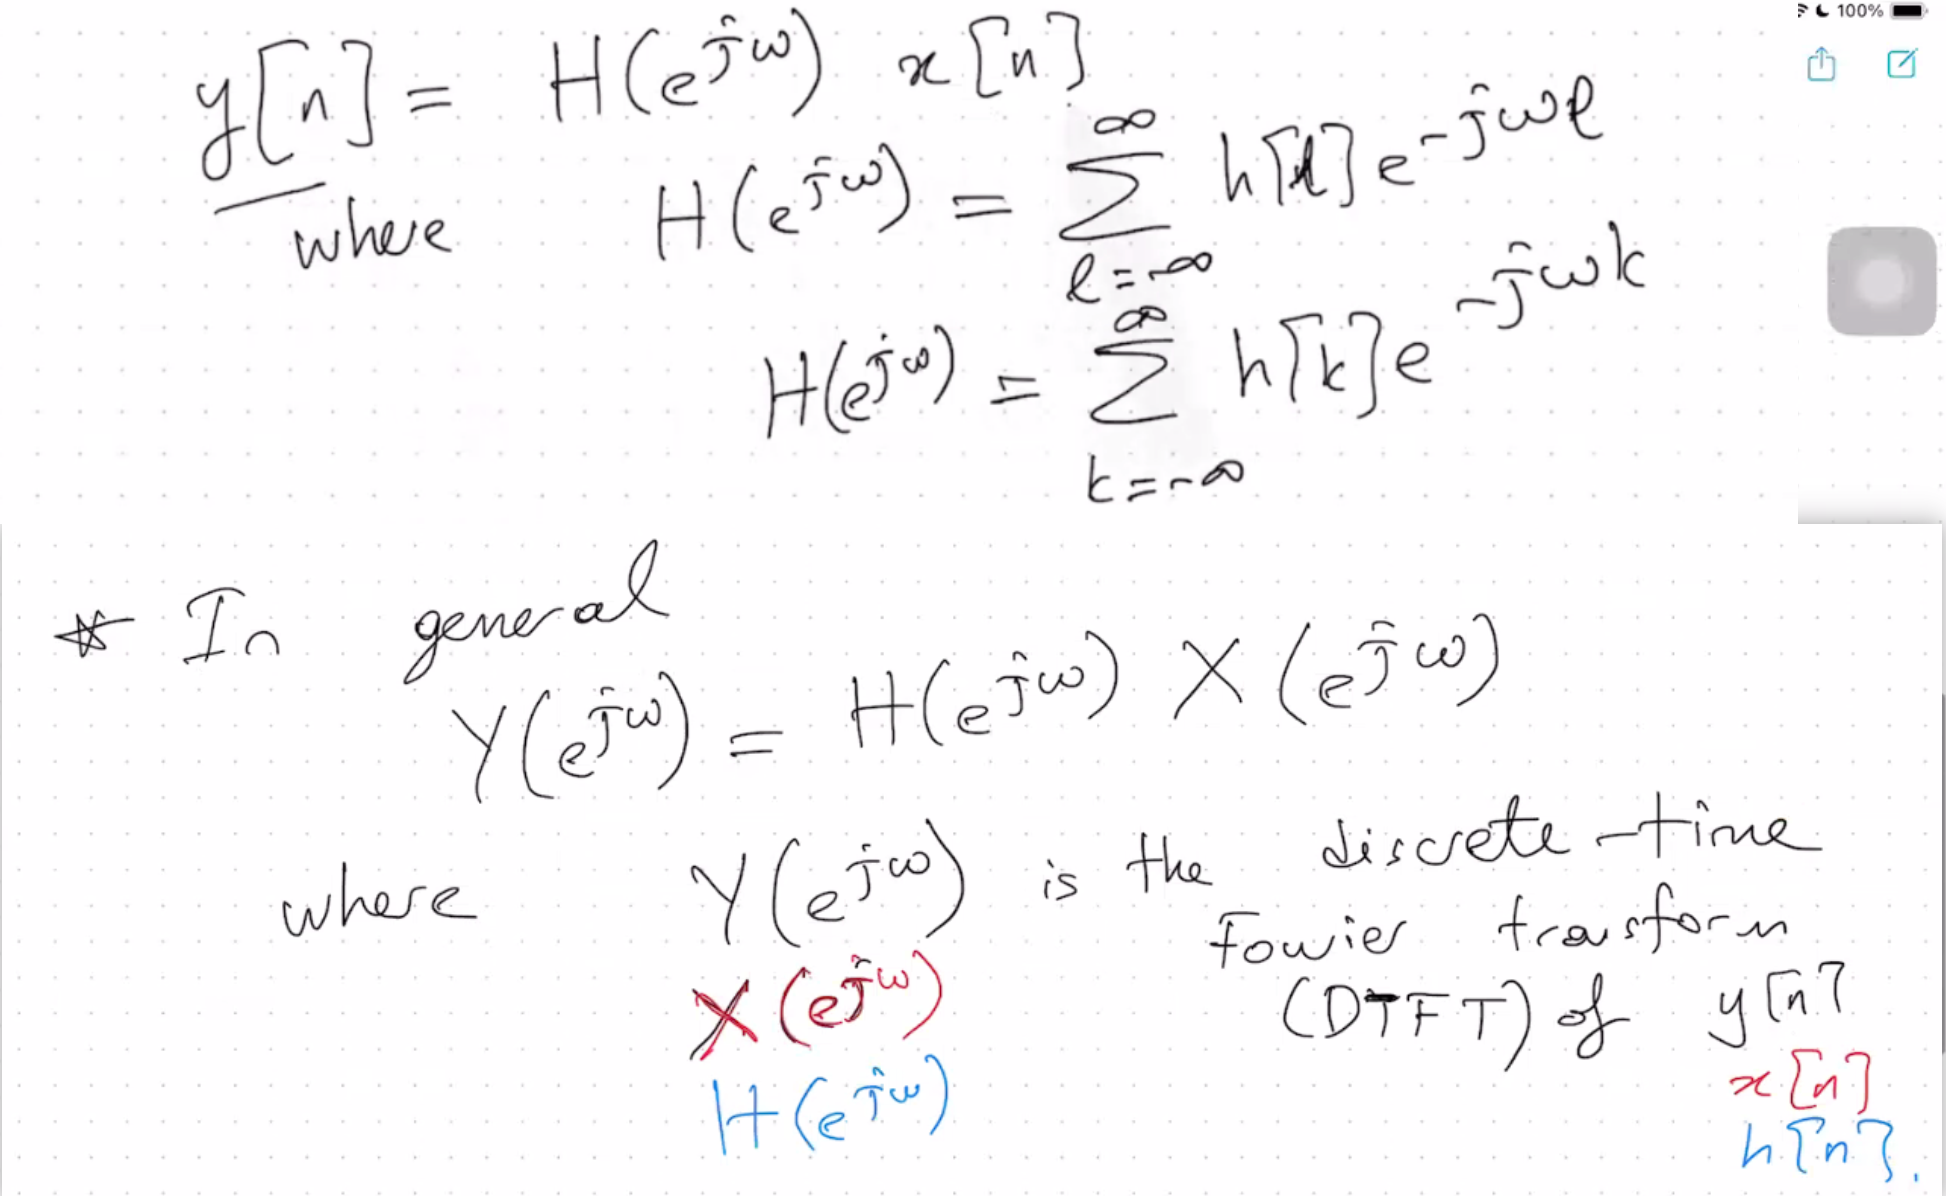 100%
y[n] = H(e^{jω}) x[n]
where H(e^{jω}) = ∑_{l=-∞}^{∞} h[l] e^{-jωl}
H(e^{jω}) = ∑_{k=-∞}^{∞} h[k] e^{-jωk}
* In general
Y(e^{jω}) = H(e^{jω}) X(e^{jω})
where Y(e^{jω}) is the discrete-time
Fourier transform
X(e^{jω}) (DTFT) of y[n]
x[n]
H(e^{jω}) h[n].